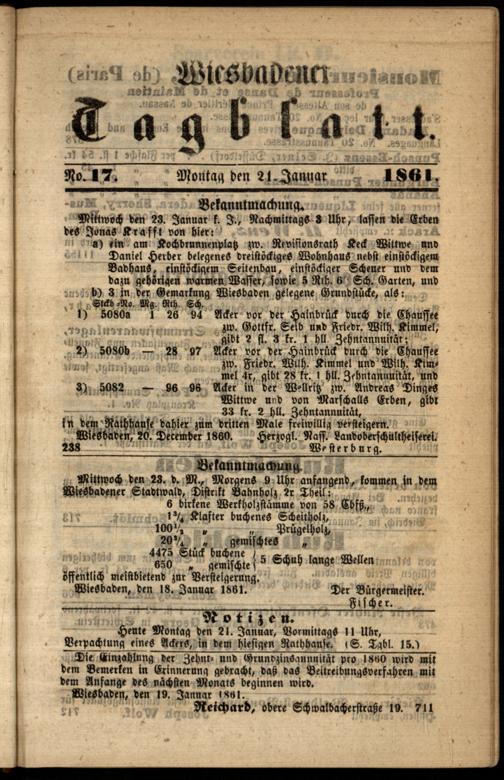 Wiesbadener
Tagblatt.
No. 17. Montag den 21. Januar 1861.
Bekanntmachung.
Mittwoch den 23. Januar k. J., Nachmittags 3 Uhr, lassen die Erben
des Jonas Krafft von hier:
a) ein am Kochbrunnenplatz zw. Revisionsrath Keck Wittwe und
Daniel Herber belegenes dreistöckiges Wohnhaus nebst einstöckigem
Badhaus, einstöckigem Seitenbau, einstöckiger Scheuer und dem
dazu gehörigen warmen Wasser, sowie 5 Rth. 6 Sch. Garten, und
b) 3 in der Gemarkung Wiesbaden gelegene Grundstücke, als:
Stck-No. Mg. Rth. Sch.
1) 5080a 1 26 94 Acker vor der Hainbrück durch die Chaussee
zw. Gottfr. Seib und Friedr. Wilh. Kimmel,
gibt 2 fl. 3 kr. 1 hll. Zehntannuität;
2) 5080b — 28 97 Acker vor der Hainbrück durch die Chaussee
zw. Friedr. Wilh. Kimmel und Wilh. Kim-
mel 4r, gibt 28 kr. 1 hll. Zehntannuität, und
3) 5082 — 96 96 Acker in der Wellritz zw. Andreas Dinges
Wittwe und von Marschalls Erben, gibt
33 kr. 2 hll. Zehntannuität,
in dem Rathhause dahier zum dritten Male freiwillig versteigern.
Wiesbaden, 20. December 1860. Herzogl. Nass. Landoberschultheiserei.
238 Westerburg.
Bekanntmachung.
Mittwoch den 23. d. M., Morgens 9 Uhr anfangend, kommen in dem
Wiesbadener Stadtwald, Distrikt Bahnholz 2r Theil:
6 birkene Werkholzstämme von 58 Cbfß.,
1¾ Klafter buchenes Scheitholz,
100¼ " " Prügelholz,
20¾ " gemischtes "
4475 Stück buchene } 5 Schuh lange Wellen
650 " gemischte
öffentlich meistbietend zur Versteigerung.
Wiesbaden, den 18. Januar 1861. Der Bürgermeister.
Fischer.
Notizen.
Heute Montag den 21. Januar, Vormittags 11 Uhr,
Verpachtung eines Ackers, in dem hiesigen Rathhause. (S. Tgbl. 15.)
Die Einzahlung der Zehnt- und Grundzinsannuität pro 1860 wird mit
dem Bemerken in Erinnerung gebracht, daß das Beitreibungsverfahren mit
dem Anfange des nächsten Monats beginnen wird.
Wiesbaden, den 19. Januar 1861.
Reichard, obere Schwalbacherstraße 19. 711